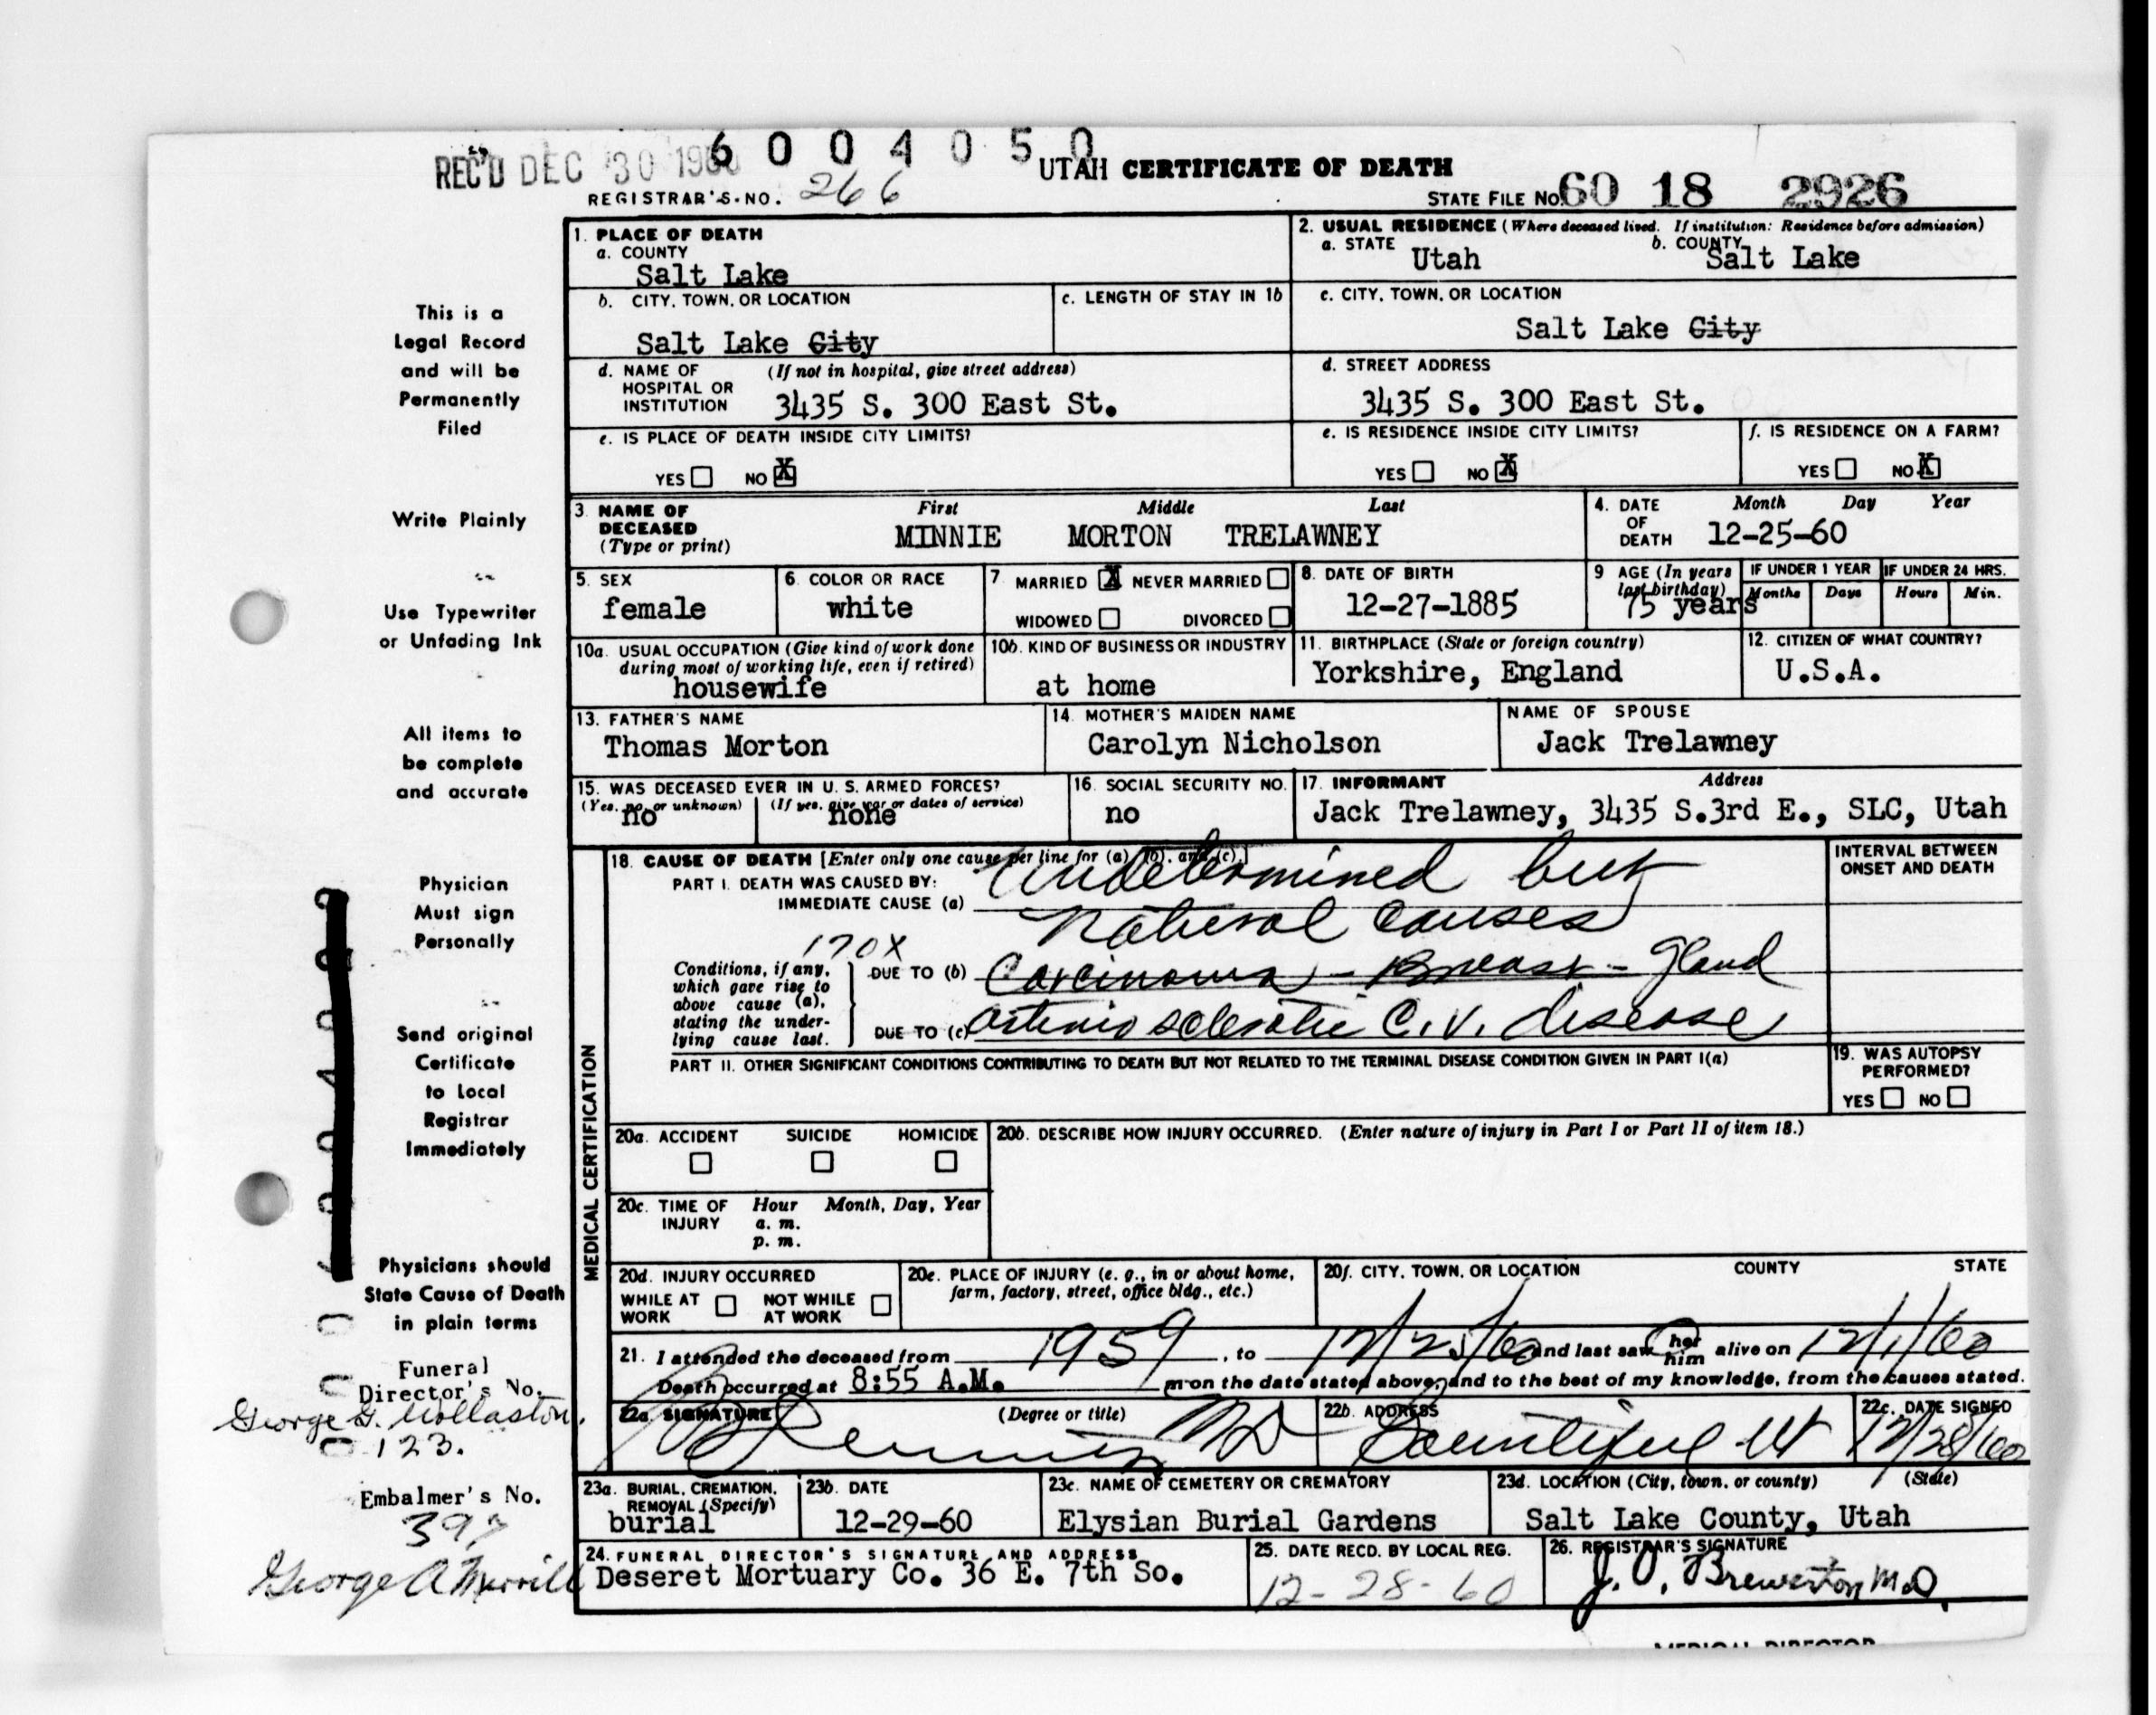 REC'D DEC 30 1960 6004050
UTAH CERTIFICATE OF DEATH
REGISTRAR'S NO. 266
STATE FILE NO. 60 18 2926
This is a
Legal Record
and will be
Permanently
Filed
Write Plainly
Use Typewriter
or Unfading Ink
All items to
be complete
and accurate
Physician
Must sign
Personally
Send original
Certificate
to Local
Registrar
Immediately
Physicians should
State Cause of Death
in plain terms
Funeral
Director's No.
George G. Wollaston
123.
Embalmer's No.
397
George A Merrill
1. PLACE OF DEATH
a. COUNTY
Salt Lake
2. USUAL RESIDENCE (Where deceased lived. If institution: Residence before admission)
a. STATE Utah b. COUNTY Salt Lake
b. CITY, TOWN, OR LOCATION
Salt Lake City
c. LENGTH OF STAY IN 1b
c. CITY, TOWN, OR LOCATION
Salt Lake City
d. NAME OF HOSPITAL OR INSTITUTION (If not in hospital, give street address)
3435 S. 300 East St.
d. STREET ADDRESS
3435 S. 300 East St.
e. IS PLACE OF DEATH INSIDE CITY LIMITS?
YES NO X
e. IS RESIDENCE INSIDE CITY LIMITS?
YES NO X
f. IS RESIDENCE ON A FARM?
YES NO X
3. NAME OF DECEASED (Type or print)
First Middle Last
MINNIE MORTON TRELAWNEY
4. DATE OF DEATH Month Day Year
12-25-60
5. SEX
female
6. COLOR OR RACE
white
7. MARRIED X NEVER MARRIED
WIDOWED DIVORCED
8. DATE OF BIRTH
12-27-1885
9 AGE (In years last birthday)
75 years
IF UNDER 1 YEAR
Months Days
IF UNDER 24 HRS.
Hours Min.
10a. USUAL OCCUPATION (Give kind of work done during most of working life, even if retired)
housewife
10b. KIND OF BUSINESS OR INDUSTRY
at home
11. BIRTHPLACE (State or foreign country)
Yorkshire, England
12. CITIZEN OF WHAT COUNTRY?
U.S.A.
13. FATHER'S NAME
Thomas Morton
14. MOTHER'S MAIDEN NAME
Carolyn Nicholson
NAME OF SPOUSE
Jack Trelawney
15. WAS DECEASED EVER IN U. S. ARMED FORCES?
(Yes, no, or unknown) (If yes, give war or dates of service)
no none
16. SOCIAL SECURITY NO.
no
17. INFORMANT Address
Jack Trelawney, 3435 S.3rd E., SLC, Utah
MEDICAL CERTIFICATION
18. CAUSE OF DEATH [Enter only one cause per line for (a), (b), and (c).]
PART I. DEATH WAS CAUSED BY:
IMMEDIATE CAUSE (a) Undetermined but
natural causes
170X
Conditions, if any, which gave rise to above cause (a), stating the underlying cause last.
DUE TO (b) Carcinoma - Breast - gland
DUE TO (c) Arteriosclerotic C.V. disease
INTERVAL BETWEEN
ONSET AND DEATH
PART II. OTHER SIGNIFICANT CONDITIONS CONTRIBUTING TO DEATH BUT NOT RELATED TO THE TERMINAL DISEASE CONDITION GIVEN IN PART I(a)
19. WAS AUTOPSY
PERFORMED?
YES NO
20a. ACCIDENT SUICIDE HOMICIDE
20b. DESCRIBE HOW INJURY OCCURRED. (Enter nature of injury in Part I or Part II of item 18.)
20c. TIME OF INJURY Hour Month, Day, Year
a. m.
p. m.
20d. INJURY OCCURRED
WHILE AT WORK NOT WHILE AT WORK
20e. PLACE OF INJURY (e. g., in or about home, farm, factory, street, office bldg., etc.)
20f. CITY, TOWN, OR LOCATION COUNTY STATE
21. I attended the deceased from 1959, to 12/25/60 and last saw her him alive on 12/1/60
Death occurred at 8:55 A.M. m on the date stated above, and to the best of my knowledge, from the causes stated.
22a. SIGNATURE (Degree or title)
MD
22b. ADDRESS
Bountiful Ut
22c. DATE SIGNED
12/28/60
23a. BURIAL, CREMATION, REMOVAL (Specify)
burial
23b. DATE
12-29-60
23c. NAME OF CEMETERY OR CREMATORY
Elysian Burial Gardens
23d. LOCATION (City, town, or county) (State)
Salt Lake County, Utah
24. FUNERAL DIRECTOR'S SIGNATURE AND ADDRESS
Deseret Mortuary Co. 36 E. 7th So.
25. DATE RECD. BY LOCAL REG.
12-28-60
26. REGISTRAR'S SIGNATURE
J. O. Brewerton M.D.
MEDICAL DIRECTOR